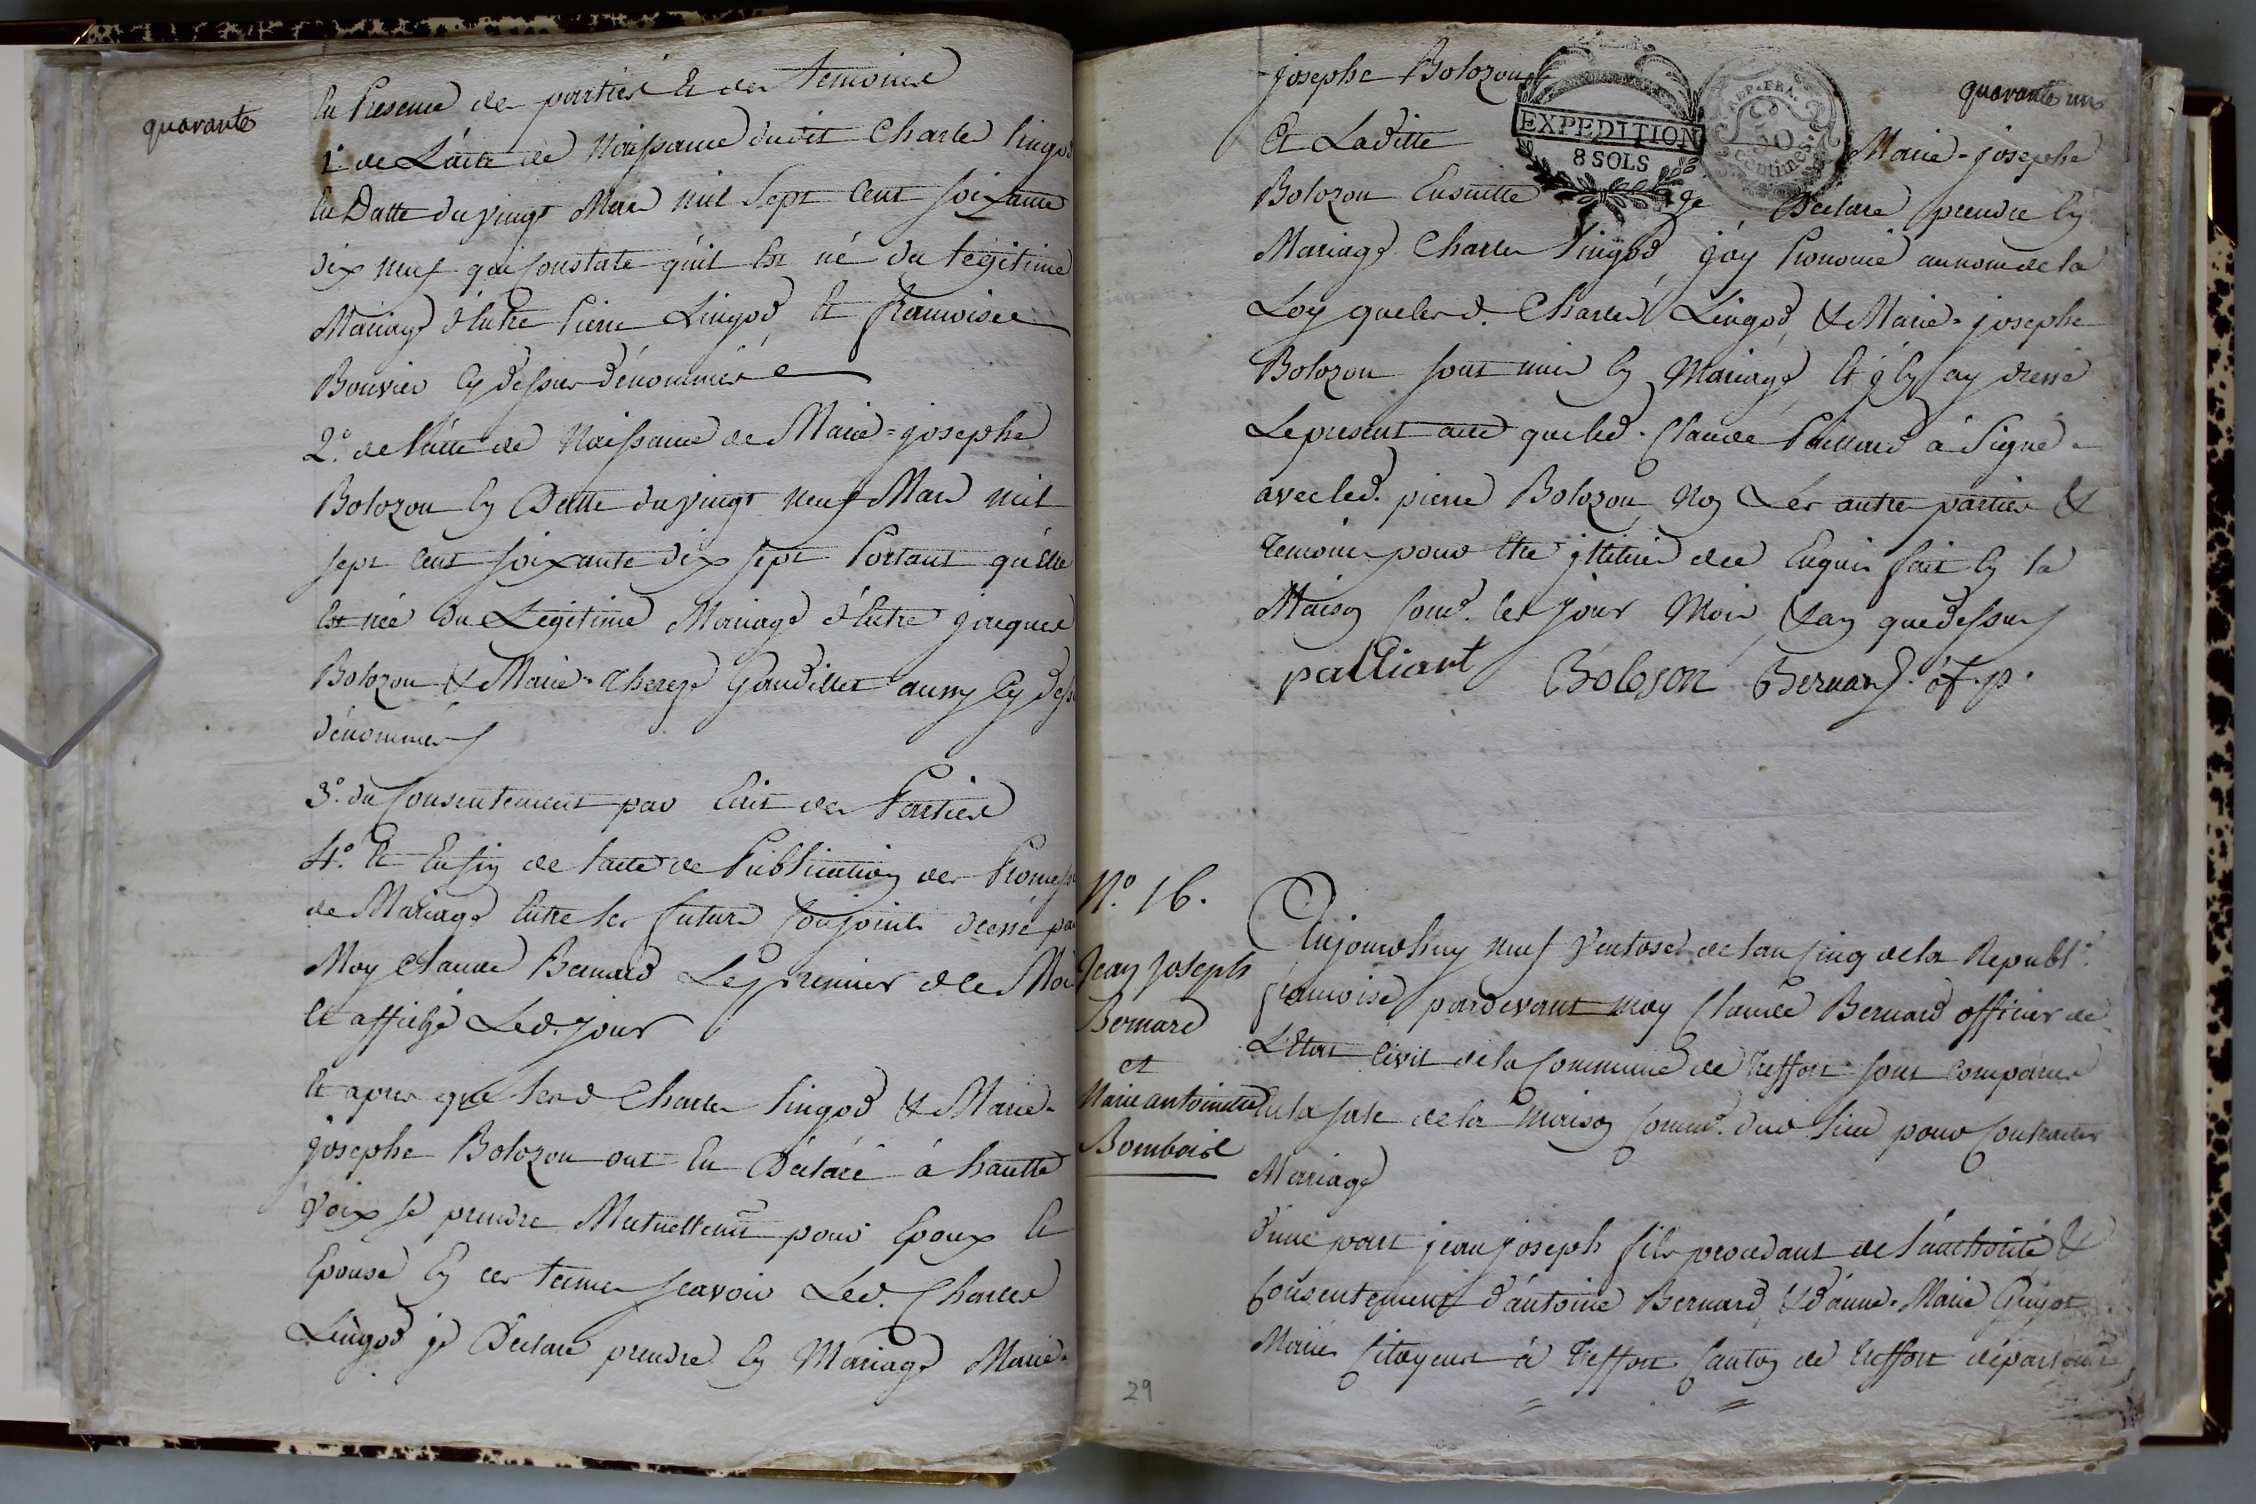 quarante
En Presence des parties Et des temoins
1º. de L'acte de Naissance dudit Charles Lingod
En Datte du vingt Mars mil sept cent soixante
dix neuf qui Constate qu'il Est né du légitime
Mariage d'Entre Pierre Lingod Et françoise
Bouvier Cy dessus dénommés
2º. de l'acte de Naissance de Marie=josephe
Bolozon En Datte du vingt neuf Mars mil
sept cent soixante dix sept Portant qu'Elle
Est née du Légitime Mariage d'Entre jacques
Bolozon & Marie-Thereze Gaudillet aussy Cy dess
dénommés
3º. du Consentement par Ecrit des Parties
4º. Et Enfin de l'acte de Publication des Promess
de Mariage Entre les futurs Conjoints dressé pa
Moy Claude Bernard Le premier de ce Moi
Et affiché Led. jour
Et apres que lesd Charles Lingod & Marie-
josephe Bolozon ont Eu Déclaré à hautte
voix se prendre Mutuellemt pour Epoux Et
Epouse En ces termes scavoir Led. Charles
Lingod je Déclare prendre En Mariage Marie-
josephe Bolozon
quarante un
EXPEDITION
8 SOLS
REP. FRA.
50
centimes
Et Laditte Marie-josephe
Bolozon Ensuitte je Déclare prendre En
Mariage Charles Lingod, j'ay Prononcé au nom de la
Loy que lesd. Charles Lingod & Marie-josephe
Bolozon sont unis En Mariage, Et j'En ay dressé
Le present acte que led. Claude Palliard à Signé
avec led. pierre Bolozon Non Les autres parties &
temoins pour Etre de ce Enquis fait En la
Maison Comue. les jour Mois & an que dessus
palliart Boloson Bernard. of. p.
Nº. 16.
Jean Joseph
Bernard
et
Marie antoinette
Bomboise
Aujourdhuy neuf Ventose de l'an Cinq de la Republ.
françoise pardevant moy Claude Bernard officier de
L'Etat Civil de la Commune de Treffort sont comparus
En la sale de la Maison Comue. dud. lieu pour Contracter
Mariage
d'une part jean joseph fils procedant de l'authorité &
Consentement d'antoine Bernard, & d'anne-Marie Guyot
Mariés Citoyens à Treffort Canton de Treffort départemt
29